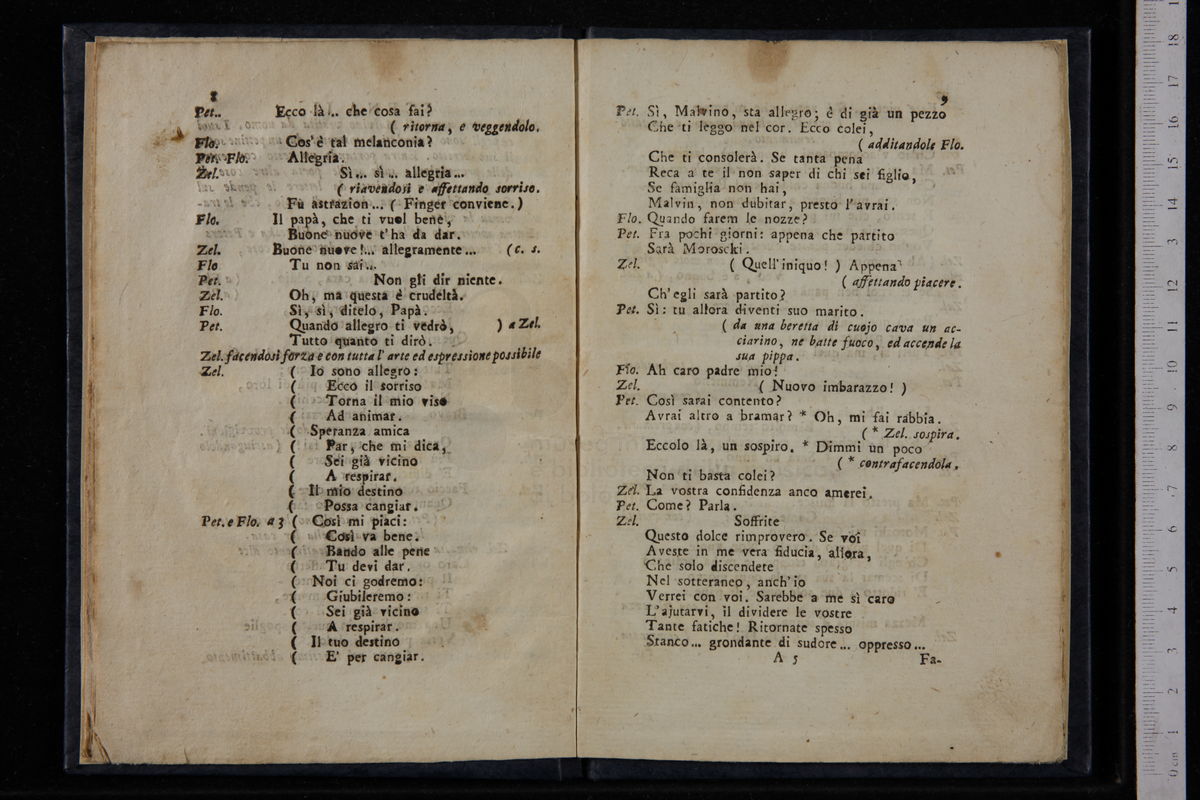 8
Pet.. Ecco là... che cosa fai?
( ritorna, e veggendolo.
Flo. Cos' è tal melanconia?
Pet. Flo. Allegria.
Zel. Sì... sì... allegria...
( riavendosi e affettando sorriso.
Fu astrazion... ( Finger conviene. )
Flo. Il papà, che ti vuol bene,
Buone nuove t'ha da dar.
Zel. Buone nuove!... allegramente... (c. s.
Flo Tu non sai...
Pet. Non gli dir niente.
Zel. Oh, ma questa è crudeltà.
Flo. Sì, sì, ditelo, Papà.
Pet. Quando allegro ti vedrò, ) a Zel.
Tutto quanto ti dirò.
Zel. facendosi forza e con tutta l' arte ed espressione possibile
Zel. ( Io sono allegro:
( Ecco il sorriso
( Torna il mio viso
( Ad animar.
( Speranza amica
( Par, che mi dica,
( Sei già vicino
( A respirar.
( Il mio destino
( Possa cangiar.
Pet. e Flo. a 3 ( Così mi piaci:
( Così va bene.
( Bando alle pene
( Tu devi dar.
( Noi ci godremo:
( Giubileremo:
( Sei già vicino
( A respirar.
( Il tuo destino
( E' per cangiar.
9
Pet. Sì, Malvino, sta allegro; è di già un pezzo
Che ti leggo nel cor. Ecco colei,
( additandole Flo.
Che ti consolerà. Se tanta pena
Reca a te il non saper di chi sei figlio,
Se famiglia non hai,
Malvin, non dubitar, presto l'avrai.
Flo. Quando farem le nozze?
Pet. Fra pochi giorni: appena che partito
Sarà Moroscki.
Zel. ( Quell'iniquo! ) Appena
( affettando piacere.
Ch'egli sarà partito?
Pet. Sì: tu allora diventi suo marito.
( da una beretta di cuojo cava un ac-
ciarino, ne batte fuoco, ed accende la
sua pippa.
Flo. Ah caro padre mio!
Zel. ( Nuovo imbarazzo! )
Pet. Così sarai contento?
Avrai altro a bramar? * Oh, mi fai rabbia.
( * Zel. sospira.
Eccolo là, un sospiro. * Dimmi un poco
( * contrafacendola.
Non ti basta colei?
Zel. La vostra confidenza anco amerei.
Pet. Come? Parla.
Zel. Soffrite
Questo dolce rimprovero. Se voi
Aveste in me vera fiducia, allora,
Che solo discendete
Nel sotteraneo, anch'io
Verrei con voi. Sarebbe a me sì caro
L'ajutarvi, il dividere le vostre
Tante fatiche! Ritornate spesso
Stanco... grondante di sudore... oppresso...
A 5 Fa-